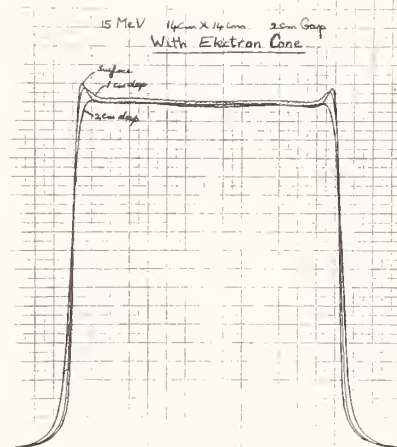 15 MeV 14cm X 14cms 2cm Gap
With Electron Cone
Surface
1 cm deep
2 cm deep